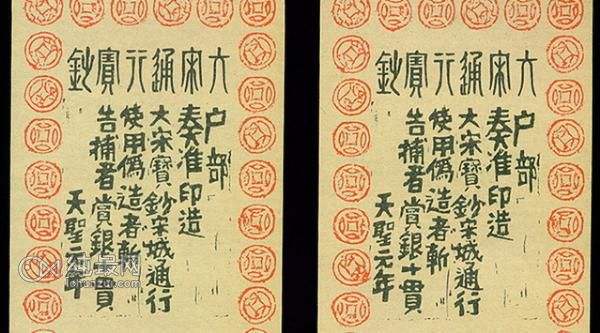 大宋通行寶鈔
户部
奏准印造
大宋寶鈔宋城通行
使用偽造者斬
告捕者賞銀十貫
天聖元年
大宋通行寶鈔
户部
奏准印造
大宋寶鈔宋城通行
使用偽造者斬
告捕者賞銀貫
天聖年